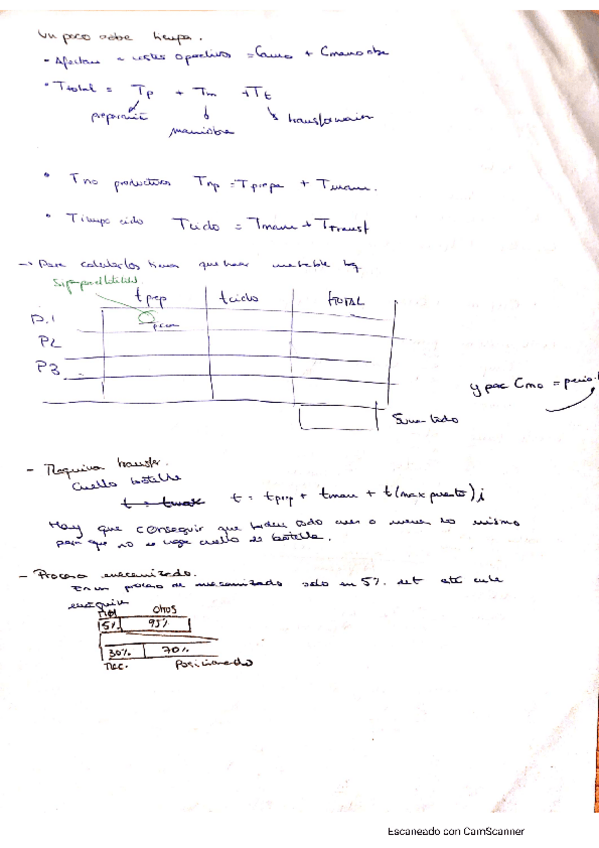 Un poco sobre tiempos.
- Afectan a costes operativos = Cmno + Cmano obra
• Ttotal = Tp + Tm + Tt
preparación
maniobra
transformación
• T no productivos Tnp = Tprepa + Tman.
• Tiempo ciclo Tciclo = Tman + Ttransf
→ Para calcularlos tienes que hacer una tabla tq
tprep tciclo tTOTAL
P.1
P2
P3
y por Cmo = precio.
Suma todo
- Máquina transfer.
Cuello botella
t = tmax t = tprep + tman + t(max puesto)i
Hay que conseguir que tarden todo mas o menos lo mismo
para que no se haga cuello de botella.
- Proceso mecanizado.
En un proceso de mecanizado solo un 5% del t está en la
máquina
MQ otros
5% 95%
30% 70%
Mec. Posicionado
Escaneado con CamScanner